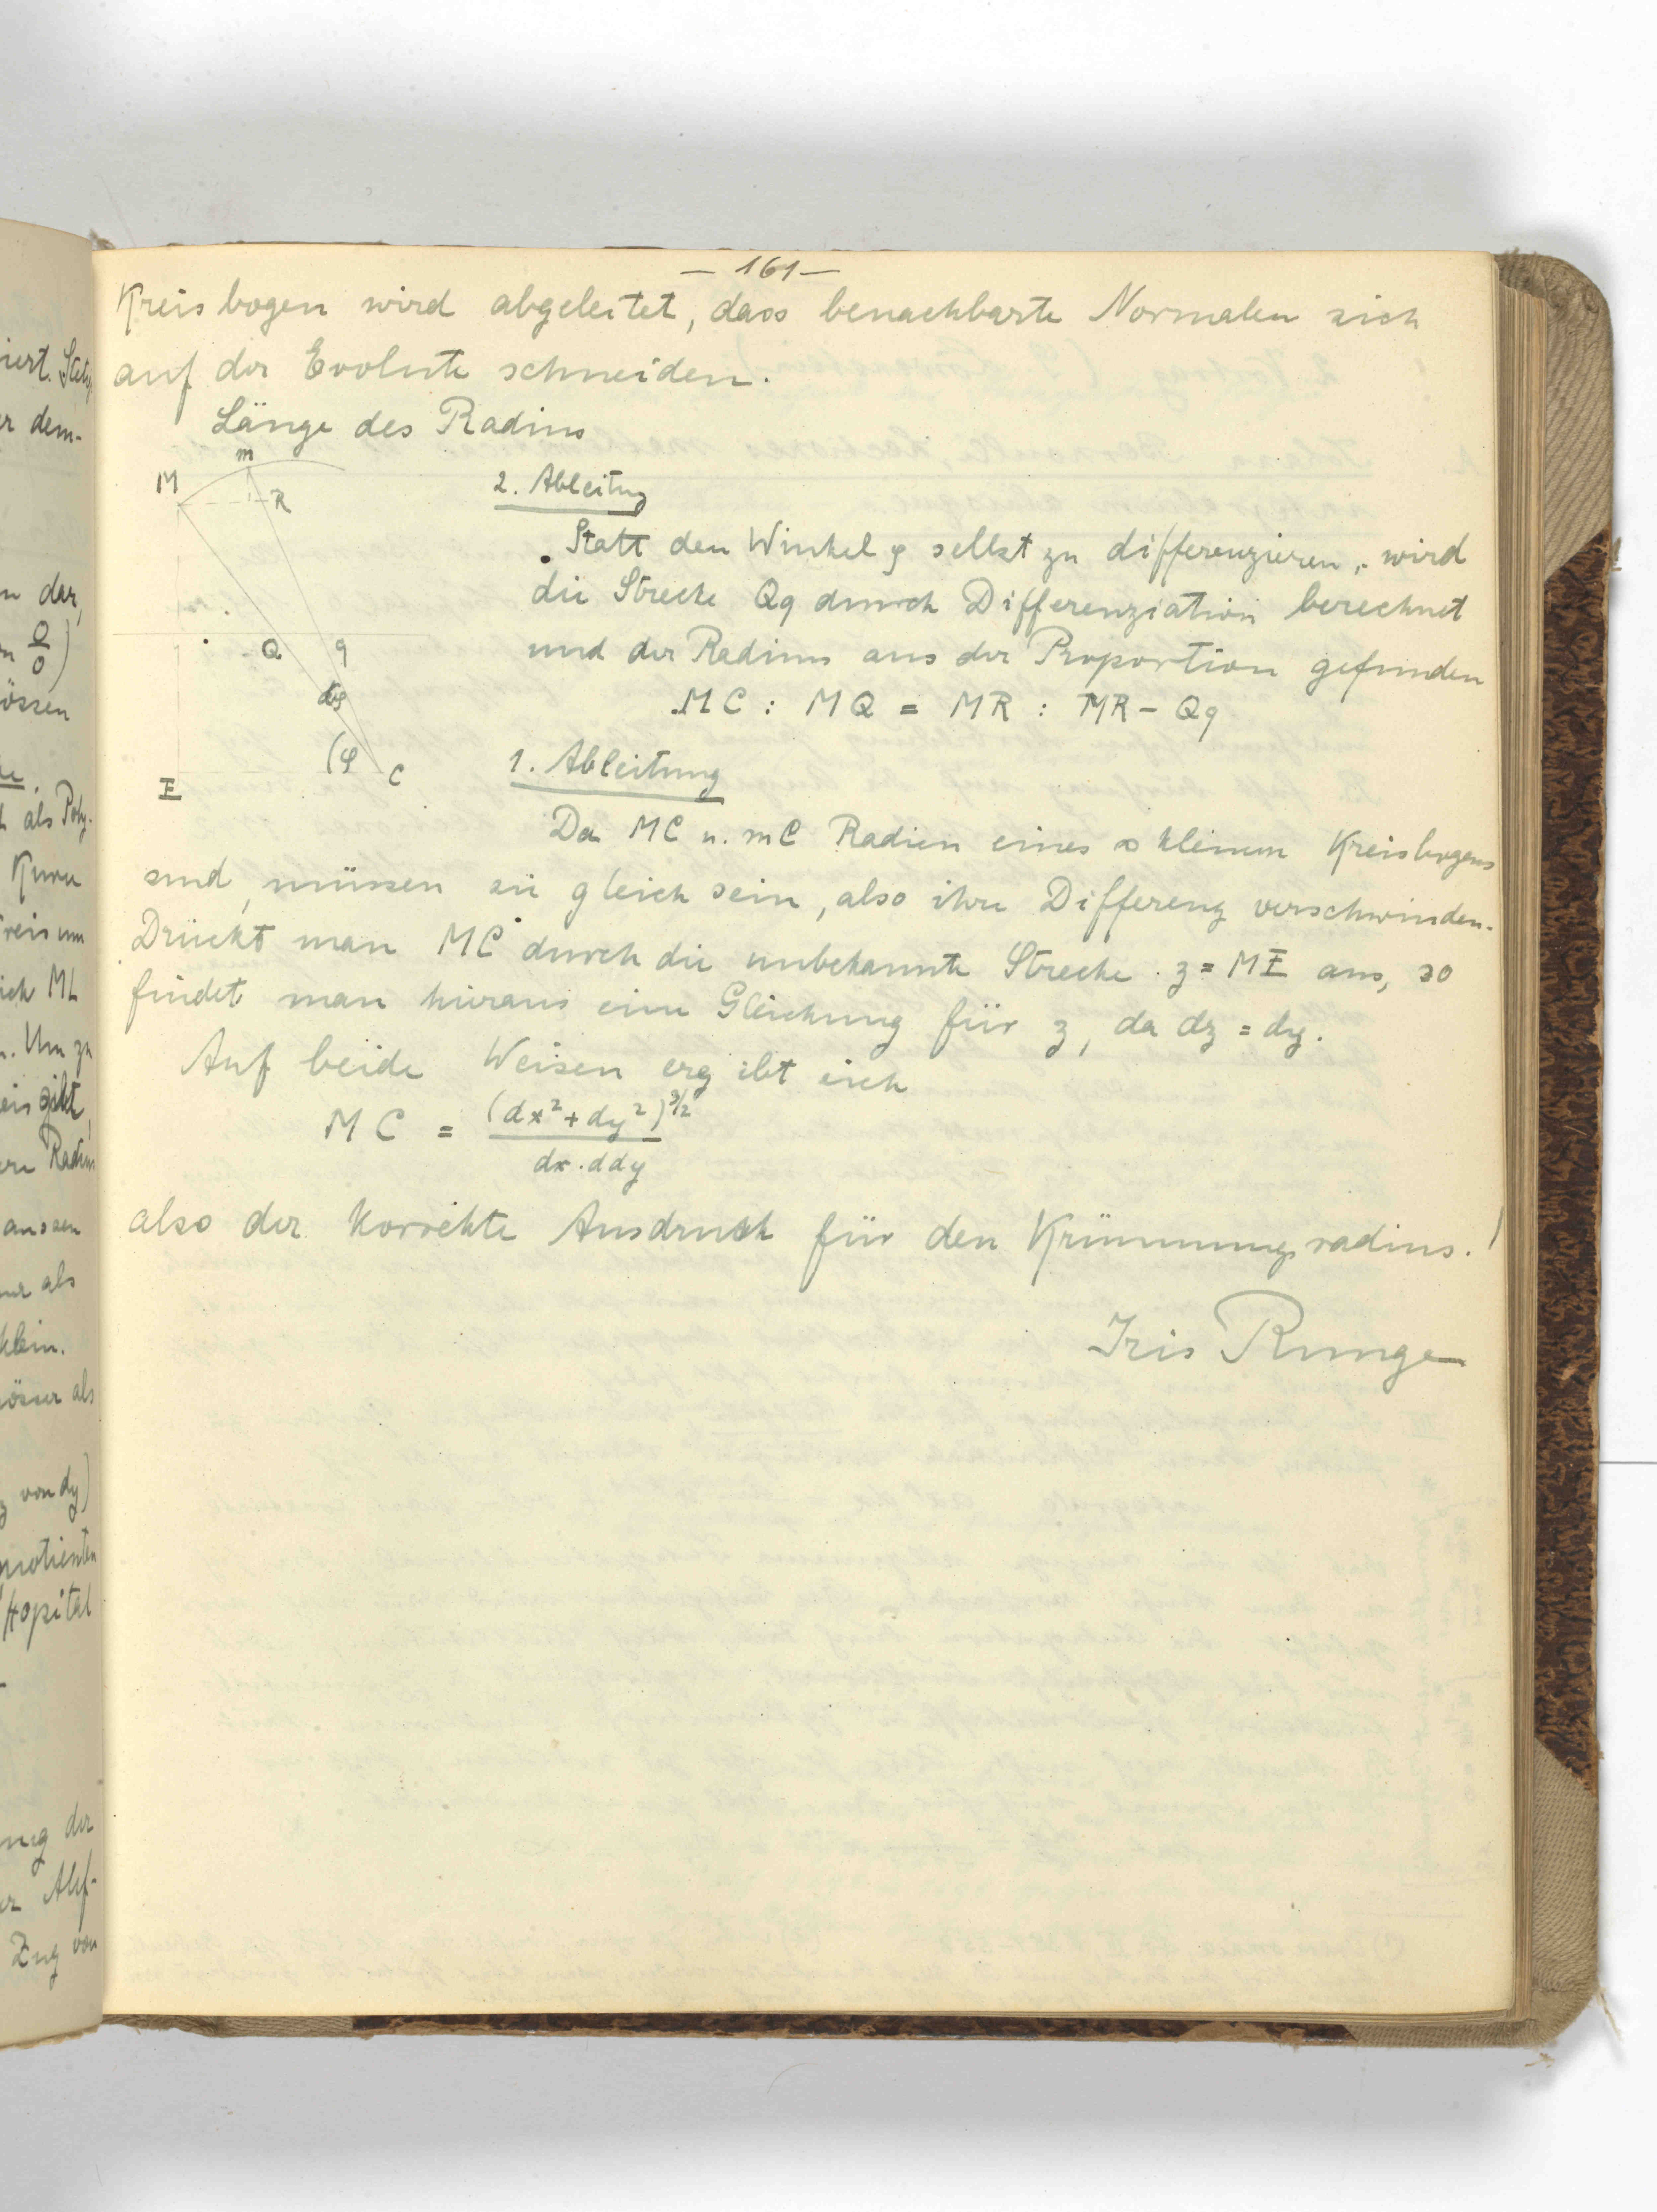 — 161 —
Kreisbogen wird abgeleitet, dass benachbarte Normalen sich
auf der Evolute schneiden.
Länge des Radius
M
m
R
Q
q
dφ
(φ
C
E
2. Ableitung
Statt den Winkel φ selbst zu differenzieren, wird
die Strecke Qq durch Differenziation berechnet
und der Radius aus der Proportion gefunden
MC : MQ = MR : MR - Qq
1. Ableitung
Da MC u. mC Radien eines ∞ kleinen Kreisbogens
sind, müssen sie gleich sein, also ihre Differenz verschwinden.
Drückt man MC durch die unbekannte Strecke z = ME aus, so
findet man hieraus eine Gleichung für z, da dz = dy.
Auf beide Weisen ergibt sich
MC = (dx² + dy²)^3/2 / dx . ddy
also der korrekte Ausdruck für den Krümmungsradius.!
Iris Runge
iert. 
r dem-
n dar,
0/0)
össen
als Poly-
Kurve
reis um
ich ML
n. Um zu
eis gibt,
Radius
aussen
als
klein.
össer als
von dy)
uotienten
Hopital
ung der
Zug von